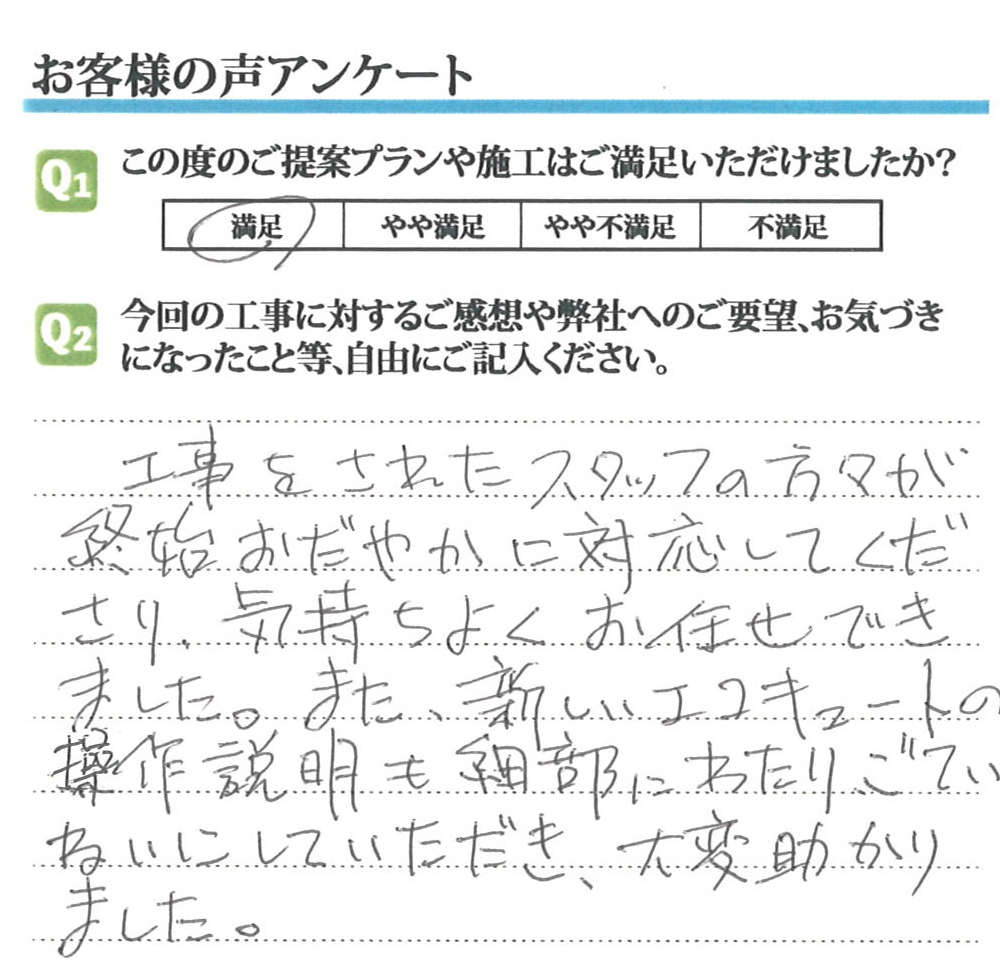 お客様の声アンケート
Q1 この度のご提案プランや施工はご満足いただけましたか?
満足 やや満足 やや不満足 不満足
Q2 今回の工事に対するご感想や弊社へのご要望、お気づき
になったこと等、自由にご記入ください。
工事をされたスタッフの方々が
終始おだやかに対応してくだ
さり、気持ちよくお任せでき
ました。また、新しいエコキュートの
操作説明も細部にわたり、ごてい
ねいにしていただき、大変助かり
ました。